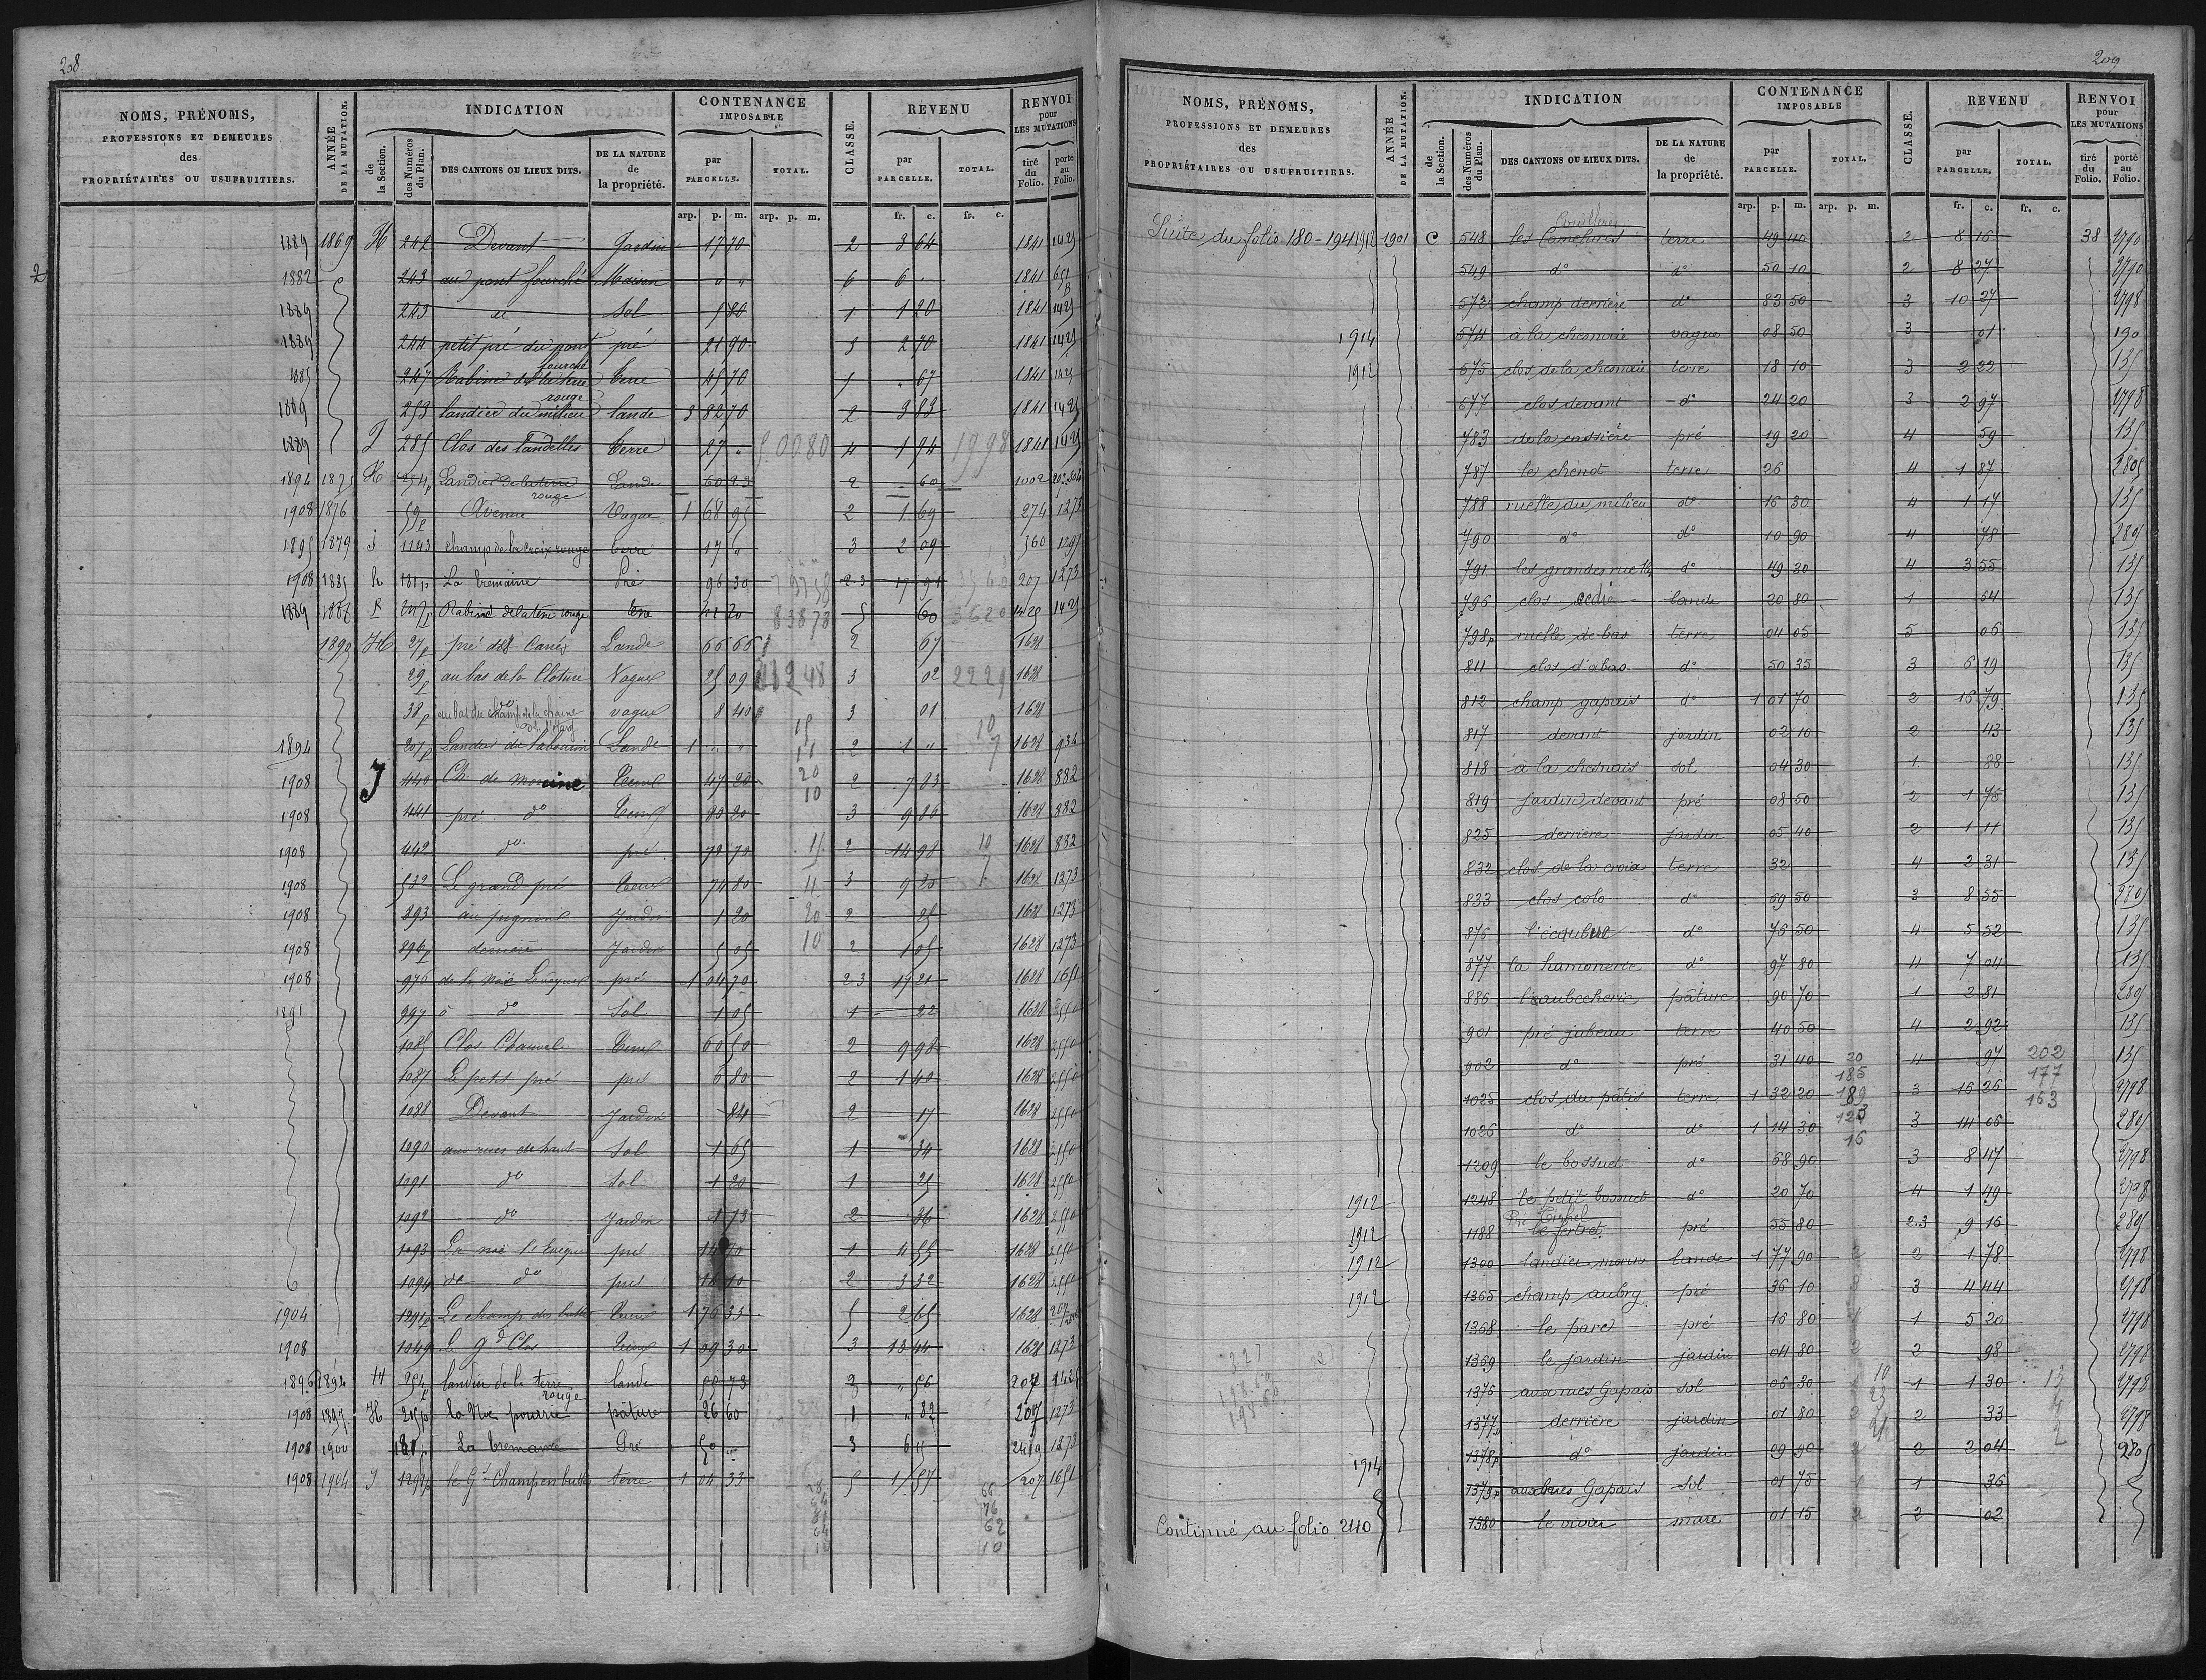 208
NOMS, PRÉNOMS,
PROFESSIONS ET DEMEURES
des
PROPRIÉTAIRES OU USUFRUITIERS.
ANNÉE DE LA MUTATION.
INDICATION
de la Section.
des Numéros du Plan.
DES CANTONS OU LIEUX DITS.
DE LA NATURE de la propriété.
CONTENANCE IMPOSABLE
par PARCELLE.
TOTAL.
CLASSE.
REVENU
par PARCELLE.
TOTAL.
RENVOI pour LES MUTATIONS
tiré du Folio.
porté au Folio.
arp. p. m. arp. p. m. fr. c. fr. c.
1889 1869 H 242 Devant Jardin 17 70 2 3 64 1841 1425
2
1882 243 au pont fourché Maison " " 6 6 " 1841 651
1889 243 Sol 5 80 1 1 20 1841 1425
1889 244 petit pré du pont fourché pré 21 90 3 2 90 1841 1425
247 Rabine de la terre rouge terre 45 70 5 " 67 1841 1425
1889 253 landier du milieu lande 3 82 70 2 3 83 1841 1425
1889 J 285 Clos des landelles terre 27 " 5.0080 4 1 94 1998 1841 1425
1894 1875 H 254p Landier de la terre rouge Lande 60 23 2 " 60 1002
1908 1876 59p Avenue Vague 1 68 95 2 1 69 274 1273
1895 1879 J 1143 champ de la croix rouge terre 17 " 3 2 09 560 1295
1908 1885 h 181p La tremaine Pré 96 30 23 17 91 207 1273
1889 1886 247p Rabine de la terre rouge terre 41 20 83873 5 60 3620 1425 1425
1890 H 27p pré des Canés Lande 66 66 2 67 1628
29p au bas de la Cloture Vague 25 09 3 02 2221 1628
38p au bas du champ de la chaine vague 8 40 3 01 1628
1894 207p Landes du Sabouin Lande 1 " " 2 1 " 1628 934
1908 J 440 Ch. de morcine Terre 47 20 2 7 83 1628 882
1908 441 pré do Terre 80 20 3 9 86 1628 882
1908 442 do pré 72 70 2 14 98 1628 882
1908 532 Le grand pré Terre 74 80 3 9 20 1628 1273
1908 893 Jardin 1 20 2 25 1628 1273
1908 896p derrière Jardin 5 05 2 1 05 1628 1273
1908 976 de la noë Levêque pré 1 04 70 23 17 21 1628 1651
1891 997 do Sol 1 05 1 22 1628 2550
1085 Clos Chauvel Terre 60 50 2 9 98 1628 2550
1087 Le petit pré pré 6 80 2 1 40 1628 2550
1088 Devant Jardin 84 2 17 1628 2550
1090 aux rues de haut Sol 1 65 1 34 1628 2550
1091 do Sol 1 20 1 25 1628 2550
1092 do Jardin 1 73 2 36 1628 2550
1093 La noë l'Eveque pré 14 70 1 4 55 1628 2550
1094 do do pré 16 10 2 3 32 1628 2550
1904 1291p Le champ des buttes Terre 1 76 33 5 2 65 1628 207
1908 1049 Le Gd Clos Terre 1 09 30 3 13 44 1628 1273
1896 1894 H 254p landier de la terre rouge lande 55 73 2 " 56 207 1425
1908 1897 H 215p la Noë pourrie pâture 26 60 1 " 82 207 1273
1908 1900 181p La tremaine Pré 50 " 3 6 " 2419 1273
1908 1904 J 1291p le Gd Champ en buttes terre 1 04 33 5 1 57 207 1651
66
76
62
10
209
NOMS, PRÉNOMS,
PROFESSIONS ET DEMEURES
des
PROPRIÉTAIRES OU USUFRUITIERS.
ANNÉE DE LA MUTATION.
INDICATION
de la Section.
des Numéros du Plan.
DES CANTONS OU LIEUX DITS.
DE LA NATURE de la propriété.
CONTENANCE IMPOSABLE
par PARCELLE.
TOTAL.
CLASSE.
REVENU
par PARCELLE.
TOTAL.
RENVOI pour LES MUTATIONS
tiré du Folio.
porté au Folio.
arp. p. m. arp. p. m. fr. c. fr. c.
Suite du folio 180-194 1912 1901 C 548 les Camelnies terre 49 40 2 8 16 38 2790
549 do do 50 10 2 8 27 2790
572 champ derrière do 83 50 3 10 27 2798
1914 574 à la chesnaie vague 08 50 3 01 190
1912 575 clos de la chesnaie terre 18 10 3 2 22 135
577 clos devant do 24 20 3 2 97 2798
783 de la cassière pré 19 20 4 59 135
787 le chenot terre 26 4 1 87 2805
788 ruelle du milieu do 16 30 4 1 17 135
790 do do 10 90 4 78 2805
791 les grandes ruelles do 49 30 4 3 55 135
796 clos dedie lande 20 80 1 64 135
798p ruelle de bas terre 04 05 5 06 135
811 clos d'abas do 50 35 3 6 19 135
812 champ gapais do 1 01 70 2 16 79 135
817 devant jardin 02 10 2 43 135
818 à la chesnais sol 04 30 1 88 135
819 jardin devant pré 08 50 2 1 75 135
825 derrière jardin 05 40 2 1 11 135
832 clos de la croix terre 32 4 2 31 135
833 clos colo do 69 50 3 8 55 2805
876 l'écqubul do 76 50 4 5 52 135
877 la hamonerie do 97 80 4 7 04 135
886 l'aubecherie pâture 90 70 1 2 81 2805
901 pré jubeau terre 40 50 4 2 92 135
902 do pré 31 40 4 97 202 135
1025 clos du pâtis terre 1 32 20 3 16 26 2798
1026 do do 1 14 30 3 14 06 2805
1209 le bossuet do 68 90 3 8 47 2798
1912 1248 le petit bossuet do 20 70 4 1 49 2798
1912 1188 le fertret pré 55 80 2.3 9 16 2805
1912 1300 landier morin lande 1 77 90 2 1 78 2798
1912 1365 champ aubry pré 36 10 3 4 44 2798
1368 le parc pré 16 80 1 5 20 2798
1369 le jardin jardin 04 80 2 98 2798
1376 aux rues Gapais sol 06 30 1 1 30 2798
1377p derrière jardin 01 80 2 33 2798
1378p do jardin 09 90 2 2 04 2805
1914 1379p aux rues Gapais sol 01 75 1 36
Continué au folio 240 1380 le vivier mare 01 15 2 02